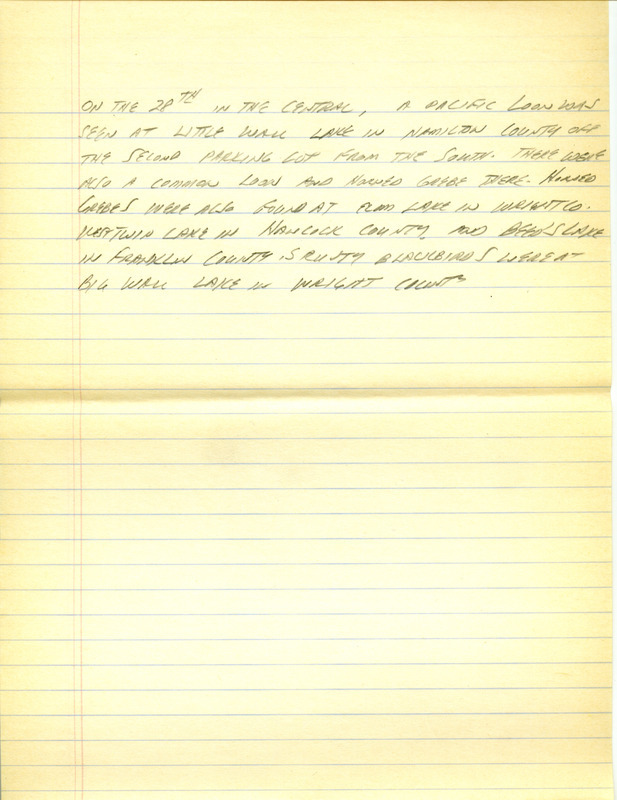 ON THE 28TH IN THE CENTRAL, A PACIFIC LOON WAS
SEEN AT LITTLE WALL LAKE IN HAMILTON COUNTY OFF
THE SECOND PARKING LOT FROM THE SOUTH. THERE WERE
ALSO A COMMON LOON AND HORNED GREBE THERE. HORNED
GREBES WERE ALSO FOUND AT ELM LAKE IN WRIGHT CO.
WEST TWIN LAKE IN HANCOCK COUNTY AND BEEDS LAKE
IN FRANKLIN COUNTY. 5 RUSTY BLACKBIRDS WERE AT
BIG WALL LAKE IN WRIGHT COUNTY